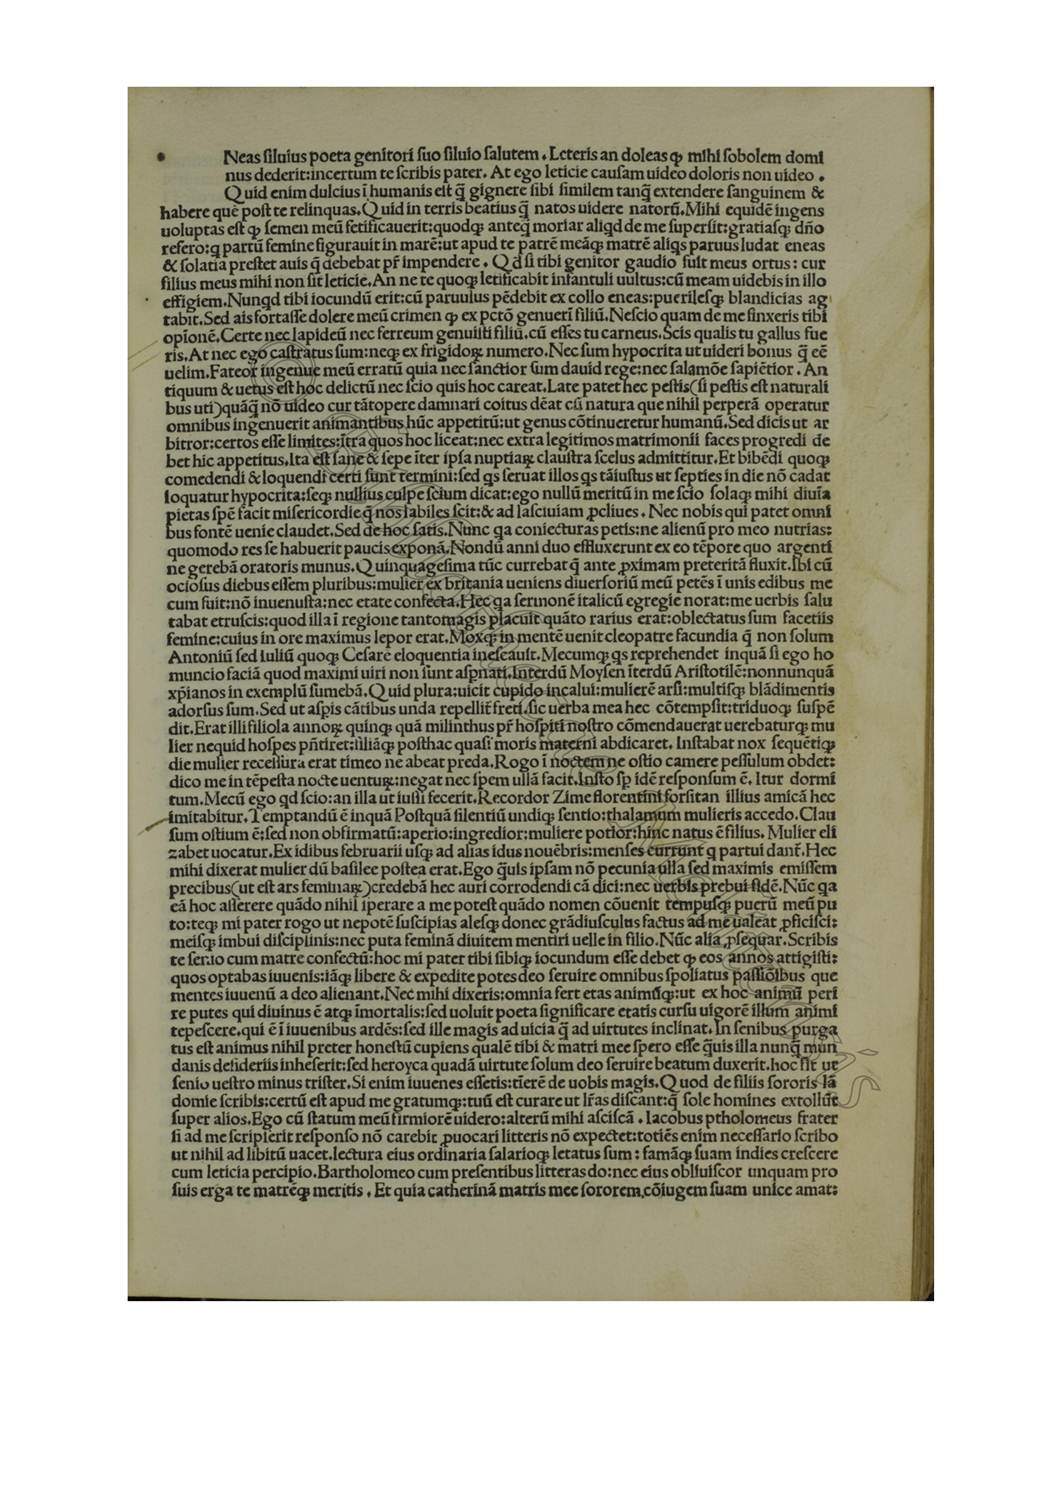 Neas ſiluius poeta genitori ſuo ſiluio ſalutem. Lcteris an doleas ꝙ mihi ſobolem domi
nus dederit:incertum te ſcribis pater. At ego leticie cauſam uideo doloris non uideo.
Quid enim dulcius ī humanis eſt q̄ gignere ſibi ſimilem tanq̄ extendere ſanguinem &
habere quē poſt te relinquas. Quid in terris beatius q̄ natos uidere natorū. Mihi equidē ingens
uoluptas eſt ꝙ ſemen meū fetificauerit:quodqꝫ anteq̄ moriar aliqd de me ſuperſit:gratiaſqꝫ dño
refero:q partū femine figurauit in marē:ut apud te patrē meāqꝫ matrē aliqs paruus ludat eneas
& ſolatia preſtet auis q̄ debebat pr̄ impendere. Qd ſi tibi genitor gaudio fuit meus ortus: cur
filius meus mihi non ſit leticie. An ne te quoqꝫ letificabit infantuli uultus:cū meam uidebis in illo
effigiem. Nunqd tibi iocundū erit:cū paruulus pēdebit ex collo eneas:puerileſqꝫ blandicias ag
tabit. Sed ais fortaſſe dolere meū crimen ꝙ ex pctō genueri filiū. Neſcio quam de me finxeris tibi
opionē. Certe nec lapideū nec ferreum genuiſti filiū, cū eſſes tu carneus. Scis qualis tu gallus fue
ris. At nec ego caſtratus ſum:neqꝫ ex frigidoꝝ numero. Nec ſum hypocrita ut uideri bonus q̄ eē
uelim. Fateor ingenue meū erratū quia nec ſanctior ſum dauid rege:nec ſalamōe ſapiētior. An
tiquum & uetus eſt hoc delictū nec ſcio quis hoc careat. Late patet hec peſtis(ſi peſtis eſt naturali
bus uti)quāq̄ nō uideo cur tātopere damnari coitus dēat cū natura que nihil perperā operatur
omnibus ingenuerit animantibus hūc appetitū:ut genus cōtinueretur humanū. Sed dicis ut ar
bitror:certos eſſe limites:ītra quos hoc liceat:nec extra legitimos matrimonii faces progredi de
bet hic appetitus. Ita eſt ſane & ſepe īter ipſa nuptiaꝝ clauſtra ſcelus admittitur. Et bibēdi quoqꝫ
comedendi & loquendi certi ſunt termini:ſed qs ſeruat illos qs tāiuſtus ut ſepties in die nō cadat
loquatur hypocrita:ſeqꝫ nullius culpe ſcium dicat:ego nullū meritū in me ſcio ſolaqꝫ mihi diuīa
pietas ſpē facit miſericordie q̄ nos labiles ſcit:& ad laſciuiam ꝓcliues. Nec nobis qui patet omni
bus fontē uenie claudet. Sed de hoc ſatis. Nunc qa coniecturas petis:ne alienū pro meo nutrias:
quomodo res ſe habuerit paucis exponā. Nondū anni duo effluxerunt ex eo tēpore quo argenti
ne gerebā oratoris munus. Quinquageſima tūc currebat q̄ ante ꝓximam preteritā fluxit. Ibi cū
ocioſus diebus eſſem pluribus:mulier ex britania ueniens diuerſoriū meū petēs ī unis edibus me
cum fuit:nō inuenuſta:nec etate confecta. Hec qa ſermonē italicū egregie norat:me uerbis ſalu
tabat etruſcis:quod illa ī regione tantomagis placuit quāto rarius erat:oblectatus ſum facetiis
femine:cuius in ore maximus lepor erat. Moxqꝫ in mentē uenit cleopatre facundia q̄ non ſolum
Antoniū ſed iuliū quoqꝫ Ceſarē eloquentia ineſcauit. Mecumqꝫ qs reprehendet inquā ſi ego ho
muncio faciā quod maximi uiri non ſunt aſpnati. Interdū Moyſen īterdū Ariſtotilē:nonnunquā
xp̄ianos in exemplū ſumebā. Quid plura:uicit cupido incalui:mulierē arſi:multiſqꝫ blādimentis
adorſus ſum. Sed ut aſpis cātibus unda repellit̄ freti. ſic uerba mea hec cōtempſit:triduoqꝫ ſuſpē
dit. Erat illi filiola annoꝝ quinqꝫ quā milinthus pr̄ hoſpiti noſtro cōmendauerat uerebaturqꝫ mu
lier nequid hoſpes pn̄tiret:illāqꝫ poſthac quaſi moris materni abdicaret. Inſtabat nox ſequētiqꝫ
die mulier receſſura erat timeo ne abeat preda. Rogo ī noctem ne oſtio camere peſſulum obdet:
dico me in tēpeſta nocte uentuꝝ:negat nec ſpem ullā facit. Inſto ſp idē reſponſum ē. Itur dormi
tum. Mecū ego qd ſcio:an illa ut iuſſi fecerit. Recordor Zime florentini forſitan illius amicā hec
imitabitur. Temptandū ē inquā Poſtquā ſilentiū undiqꝫ ſentio:thalamum mulieris accedo. Clau
ſum oſtium ē:ſed non obfirmatū:aperio:ingredior:muliere potior:hinc natus ē filius. Mulier eli
zabet uocatur. Ex idibus februarii uſqꝫ ad alias idus nouēbris:menſes currunt q partui dant̄. Hec
mihi dixerat mulier dū baſilee poſtea erat. Ego q̄uis ipſam nō pecunia ulla ſed maximis emiſſem
precibus(ut eſt ars feminaꝝ)credebā hec auri corrodendi cā dici:nec uerbis prebui fidē. Nūc qa
eā hoc aſſerere quādo nihil ſperare a me poteſt quādo nomen cōuenit tempuſqꝫ puerū meū pu
to:teqꝫ mi pater rogo ut nepotē ſuſcipias aleſqꝫ donec grādiuſculus factus ad me ualeat ꝓficiſci:
meiſqꝫ imbui diſciplinis:nec puta feminā diuitem mentiri uelle in filio. Nūc alia ꝓſequar. Scribis
te ſenio cum matre confectū:hoc mi pater tibi ſibiqꝫ iocundum eſſe debet ꝙ eos annos attigiſti:
quos optabas iuuenis:iāqꝫ libere & expedite potes deo ſeruire omnibus ſpoliatus paſſiōibus que
mentes iuuenū a deo alienant. Nec mihi dixeris:omnia fert etas animūqꝫ:ut ex hoc animū peri
re putes qui diuinus ē atqꝫ īmortalis:ſed uoluit poeta ſignificare etatis curſu uigorē illum animi
tepeſcere, qui ē ī iuuenibus ardēs:ſed ille magis ad uicia q̄ ad uirtutes inclinat. In ſenibus purga
tus eſt animus nihil preter honeſtū cupiens qualē tibi & matri mee ſpero eſſe q̄uis illa nunq̄ mun
danis deſideriis inheſerit:ſed heroyca quadā uirtute ſolum deo ſeruire beatum duxerit. hoc fit ut
ſenio ueſtro minus triſter. Si enim iuuenes eſſetis:tīerē de uobis magis. Quod de filiis ſororis lā
domie ſcribis:certū eſt apud me gratumqꝫ:tuū eſt curare ut lr̄as diſcant:q̄ ſole homines extollūt
ſuper alios. Ego cū ſtatum meū firmiorē uidero:alterū mihi aſciſcā. Iacobus ptholomeus frater
ſi ad me ſcripſerit reſponſo nō carebit ꝓuocari litteris nō expectet:totiēs enim neceſſario ſcribo
ut nihil ad libitū uacet. lectura eius ordinaria ſalarioqꝫ letatus ſum: famāqꝫ ſuam indies creſcere
cum leticia percipio. Bartholomeo cum preſentibus litteras do:nec eius obliuiſcor unquam pro
ſuis erga te matrēqꝫ meritis. Et quia catherinā matris mee ſororem, cōiugem ſuam unice amat: